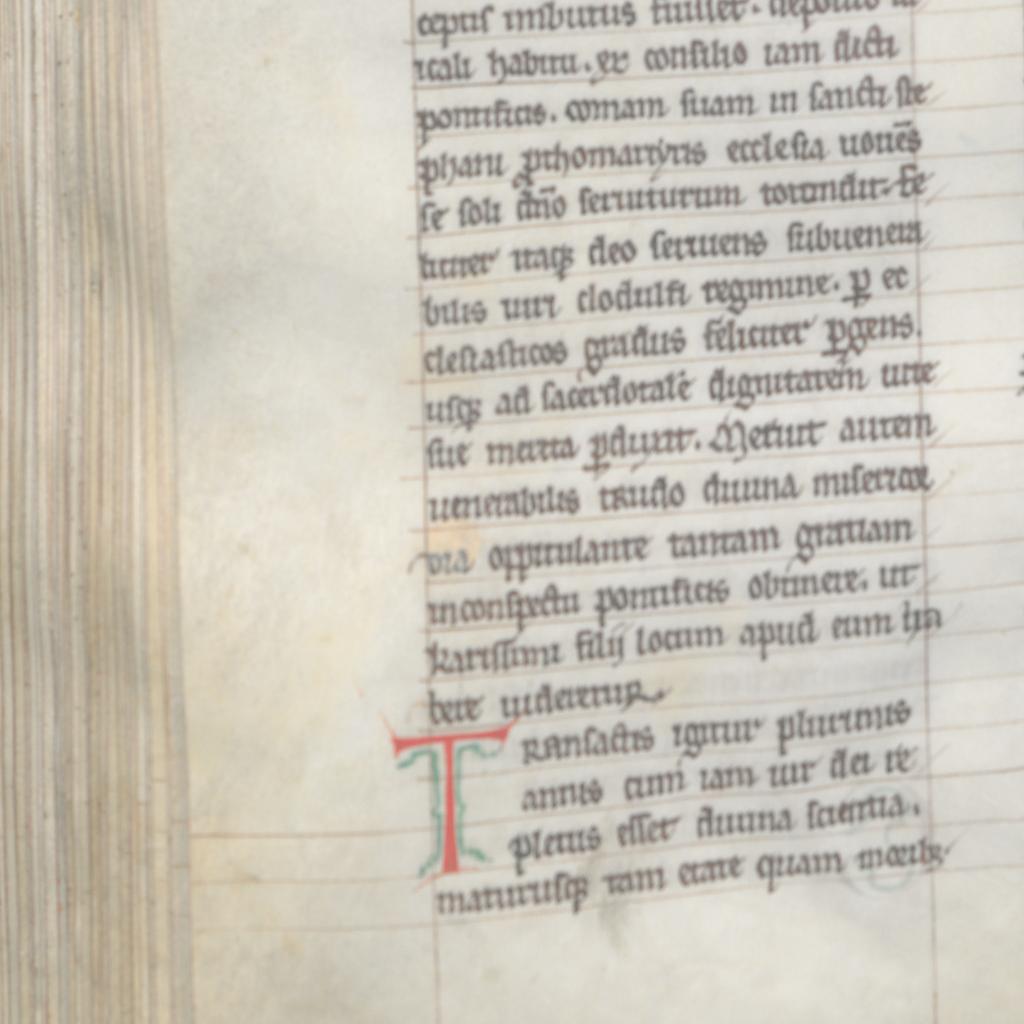 ceptis imbutus fuisset. deposito la
icali habitu. ex consilio iam dicti
pontificis. comam suam in sancti ste
phani prthomartyris ecclesia uouēs
se soli dño seruiturum totondit. Fe
liciter itaq; deo seruiens sub uenera
bilis uiri clodulfi regimine. p ec
clesiasticos gradus feliciter pgens.
usq; ad sacerdotalē dignitatem uite
sue merita pduxit. Meruit autem
uenerabilis trudo diuina miserico
dia oppitulante tantam gratiam
in conspectu pontificis obtinere. ut
karissimi filij locum apud eum ha
bere uideretur.
Transactis igitur plurimis
annis cum iam uir dei re
pletus esset diuina scientia.
maturusq; tam etate quam morib;